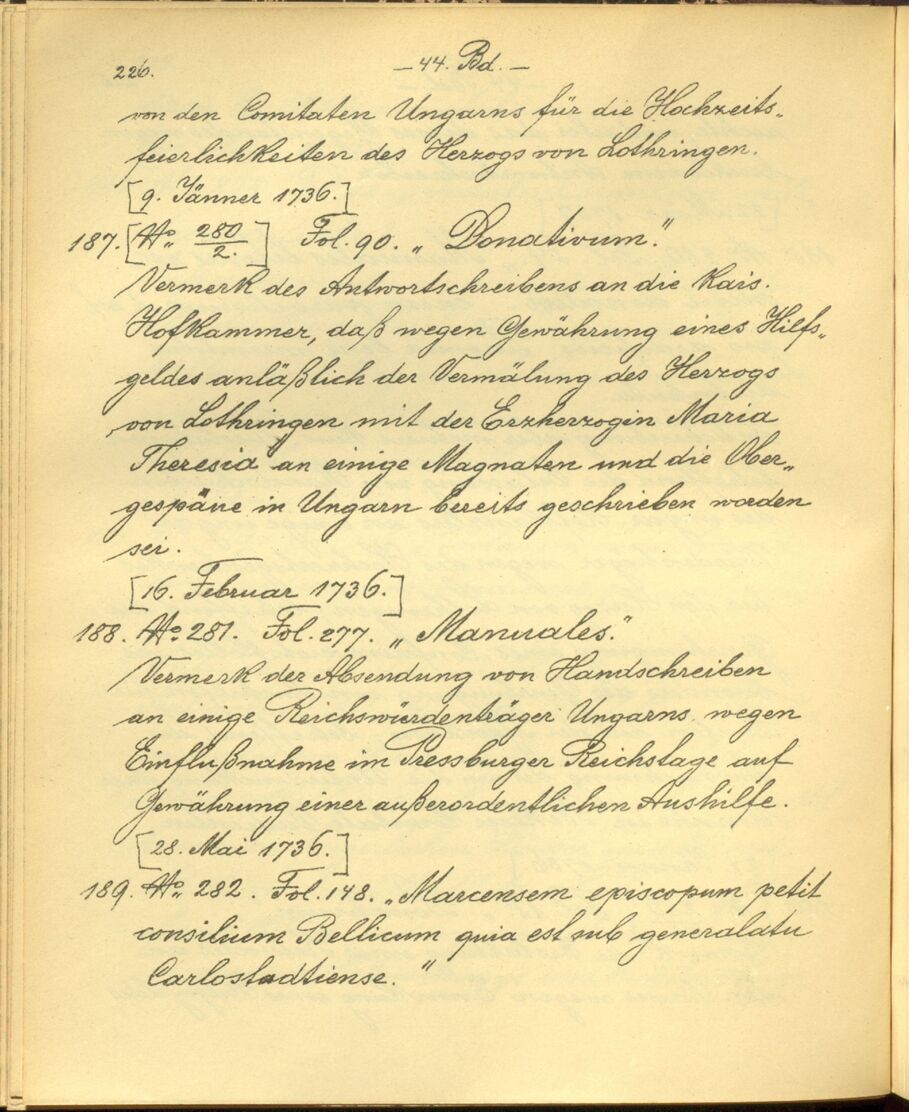 226.
– 44. Bd. –
von den Comitaten Ungarns für die Hochzeits„
feierlichkeiten des Herzogs von Lothringen.
[9. Jänner 1736.]
187. [No. 280/2.] Fol. 90. „Donativum."
Vermerk des Antwortschreibens an die Kais.
Hofkammer, daß wegen Gewährung eines Hilfs„
geldes anläßlich der Vermälung des Herzogs
von Lothringen mit der Erzherzogin Maria
Theresia an einige Magnaten und die Ober„
gespäne in Ungarn bereits geschrieben worden
sei.
[16. Februar 1736.]
188. No. 281. Fol. 277. „Manuales."
Vermerk der Absendung von Handschreiben
an einige Reichswürdenträger Ungarns wegen
Einflußnahme im Pressburger Reichstage auf
Gewährung einer außerordentlichen Aushilfe.
[28. Mai 1736.]
189. No. 282. Fol. 148. „Marcensem episcopum petit
consilium Bellicum quia est sub generalatu
Carlostadtiense."